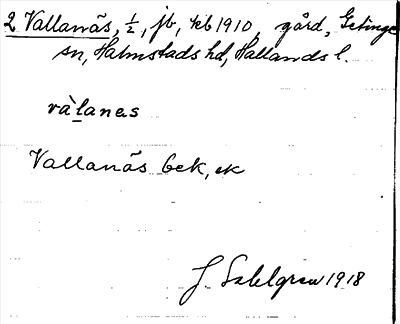 2 Vallanäs, ½, jb, kb 1910, gård, Getinge
sn, Halmstads hd, Hallands l.
và̀lanes
Vallanäs bek, ek
J. Sahlgren 1918